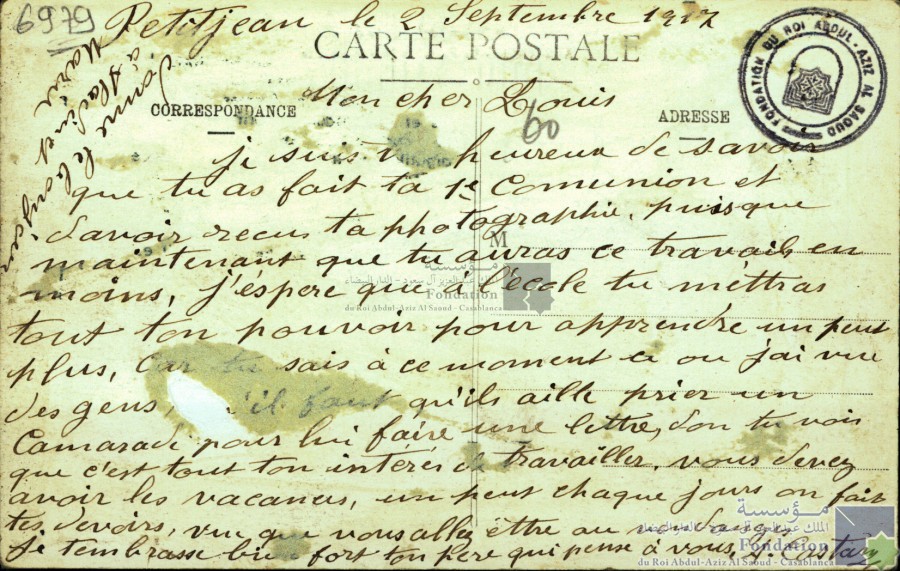 6979
Petitjean le 2 Septembre 1917
CARTE POSTALE
CORRESPONDANCE
ADRESSE
FONDATION DU ROI ABDUL-AZIZ AL SAOUD
60
Mon cher Louis
je suis heureux de savoir
que tu as fait ta 1e Comunion et
d'avoir recus ta photographie, puisque
M
maintenant que tu auras ce travail en
moins, j'éspere que à l'école tu méttras
tout ton pouvoir pour apprendre un peut
plus, Car tu sais à ce moment ci ou j'ai vue
des gens, s'il faut qu'ils aille prier un
Camarade pour lui faire une lettre, don tu vois
que c'est tout ton intérés de travailler, vous devez
avoir les vacances, un peut chaque jours on fait
tes devoirs, vue que vous allez éttre au vendange
Je t'embrasse bien fort ton père qui pense à vous,
donne le bonjour
à et
Marie
مؤسسة
الملك عبد العزيز آل سعود - الدار البيضاء
Fondation
du Roi Abdul-Aziz Al Saoud - Casablanca
مؤسسة
الملك عبد العزيز آل سعود - الدار البيضاء
Fondation
du Roi Abdul-Aziz Al Saoud - Casablanca